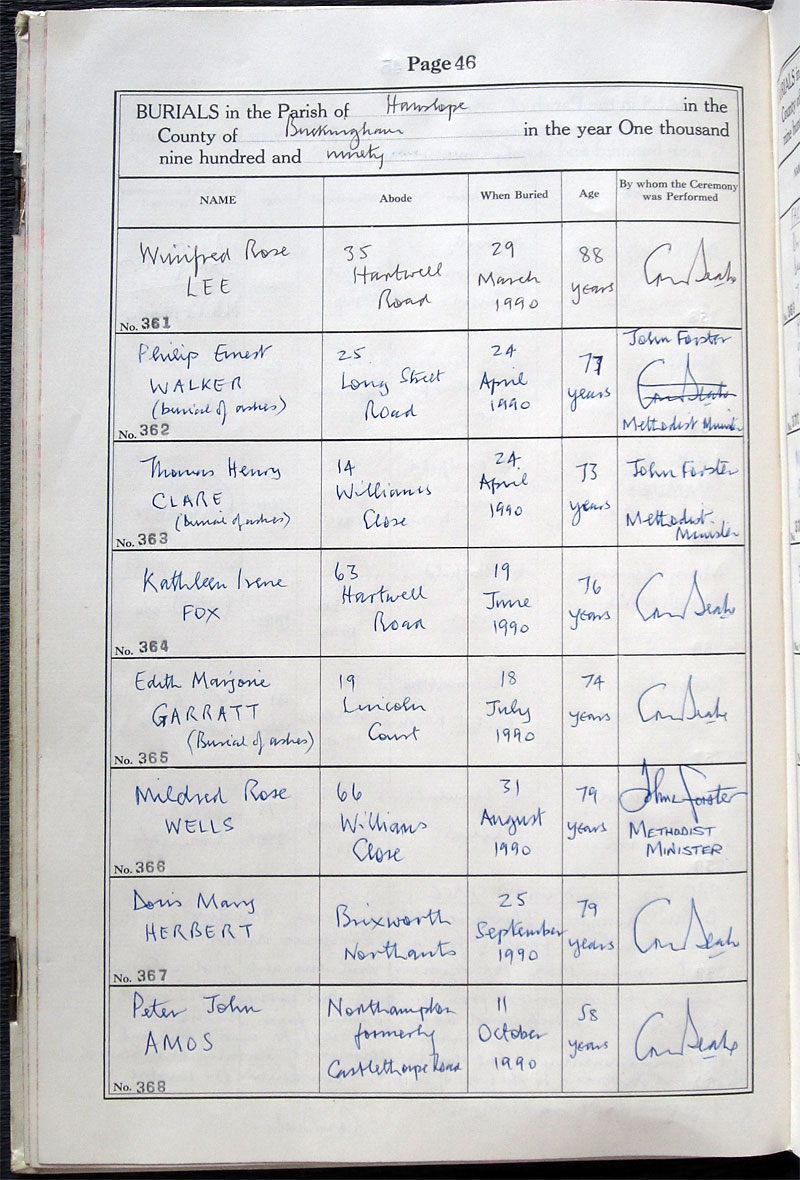 Page 46
BURIALS in the Parish of Hanslope in the
County of Buckingham in the year One thousand
nine hundred and ninety
NAME Abode When Buried Age By whom the Ceremony was Performed
Winifred Rose
LEE
No. 361
35
Hartwell
Road
29
March
1990
88
years
Philip Ernest
WALKER
(burial of ashes)
No. 362
25
Long Street
Road
24
April
1990
77
years
John Forster
Methodist Minister
Thomas Henry
CLARE
(burial of ashes)
No. 363
14
Williams
Close
24
April
1990
73
years
John Forster
Methodist
Minister
Kathleen Irene
FOX
No. 364
63
Hartwell
Road
19
June
1990
76
years
Edith Marjorie
GARRATT
(Burial of ashes)
No. 365
19
Lincoln
Court
18
July
1990
74
years
Mildred Rose
WELLS
No. 366
66
Williams
Close
31
August
1990
79
years
John Forster
METHODIST
MINISTER
Doris Mary
HERBERT
No. 367
Brixworth
Northants
25
September
1990
79
years
Peter John
AMOS
No. 368
Northampton
formerly
Castlethorpe Road
11
October
1990
58
years